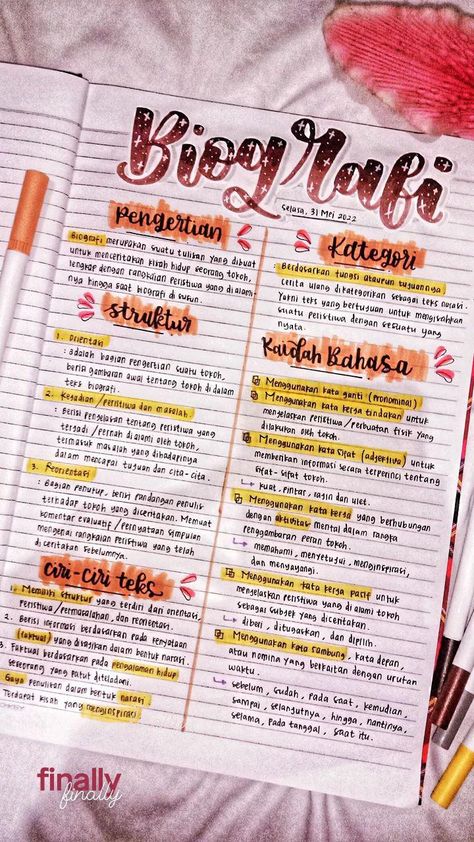 Biografi
selasa, 31 Mei 2022
Pengertian
Biografi merupakan suatu tulisan yang dibuat
untuk menceritakan kisah hidup seorang tokoh,
lengkap dengan rangkaian peristiwa yang dialam-
nya hingga saat biografi di susun.
Struktur
1. Orientasi
: adalah bagian pengertian suatu tokoh,
berisi gambaran awal tentang tokoh di dalam
teks biografi.
2. Kejadian /peristiwa dan masalah
: Berisi penjelasan tentang peristiwa yang
terjadi /pernah dialami oleh tokoh,
termasuk masalah yang dihadapinya
dalam mencapai tujuan dan cita-cita.
3. Reorientasi
: Bagian penutup, berisi pandangan penulis
terhadap tokoh yang diceritakan. Memuat
komentar evaluatif /pernyataan simpulan
mengenai rangkaian peristiwa yang telah
di ceritakan sebelumnya.
ciri-ciri teks
1. Memiliki struktur yang terdiri dari orientasi,
Peristiwa /permasalahan, dan reorientasi.
2. Berisi informasi berdasarkan pada kenyataan
(faktual) yang disajikan dalam bentuk narasi.
3. Faktual berdasarkan pada pengalaman hidup
seseorang yang patut diteladani.
Gaya penulisan dalam bentuk narasi.
Terdapat kisah yang menginspirasi
Kategori
Berdasarkan fungsi ataupun tujuannya
cerita ulang dikategorikan sebagai teks narasi.
Yakni teks yang bertujuan untuk mengisahkan
suatu peristiwa dengan sesuatu yang
nyata.
Kaidah Bahasa
Menggunakan kata ganti (pronominal)
Menggunakan kata kerja tindakan untuk
menjelaskan peristiwa/perbuatan fisik yang
dilakukan oleh tokoh.
Menggunakan kata sifat (adjektiva) untuk
memberikan informasi secara terperinci tentang
sifat-sifat tokoh.
kuat, pintar, rajin dan ulet.
Menggunakan kata kerja yang berhubungan
dengan aktivitas mental dalam rangka
penggambaran peran tokoh.
memahami, menyetujui, menginspirasi,
dan menyayangi.
Menggunakan kata kerja pasif untuk
menjelaskan peristiwa yang di alami tokoh
sebagai subjek yang diceritakan.
diberi, ditugaskan, dan dipilih.
Menggunakan kata sambung, kata depan,
atau nomina yang berkaitan dengan urutan
waktu.
sebelum, sudah, pada saat, kemudian,
sampai, selanjutnya, hingga, nantinya,
selama, pada tanggal, saat itu.
finally
finally